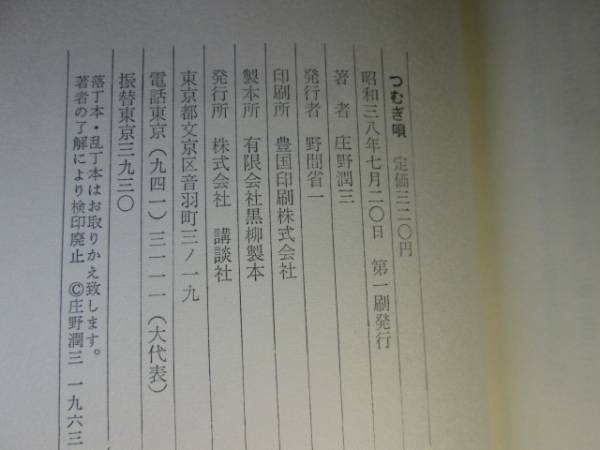 つむぎ唄　定価三二〇円
昭和三八年七月二〇日　第一刷発行
著　者　庄野潤三
発行者　野間省一
印刷所　豊国印刷株式会社
製本所　有限会社黒柳製本
発行所　株式会社　講談社
東京都文京区音羽町三ノ一九
電話東京（九四一）三一一一（大代表）
振替東京三九三〇
落丁本・乱丁本はお取りかえ致します。
著者の了解により検印廃止　©庄野潤三　一九六三